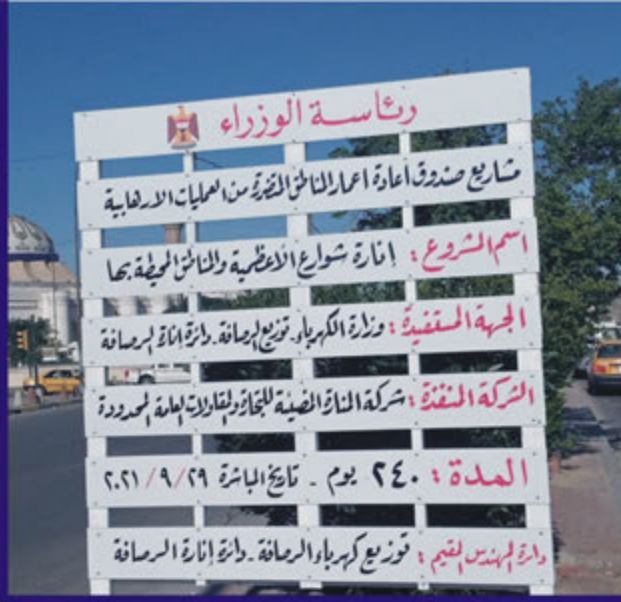 رئاسة الوزراء
مشاريع صندوق أعادة اعمار المناطق المتضررة من العمليات الارهابية
اسم المشروع : إنارة شوارع الأعظمية والمناطق المحيطة بها
الجهة المستفيدة : وزارة الكهرباء. توزيع الرصافة. دائرة انارة الرصافة
الشركة المنفذة : شركة المنارة المضيئة للتجارة والمقاولات العامة المحدودة
المدة : ٢٤٠ يوم - تاريخ المباشرة ٢٠٢١/٩/٢٩
دائرة المهندس المقيم : توزيع كهرباء الرصافة - دائرة إنارة الرصافة